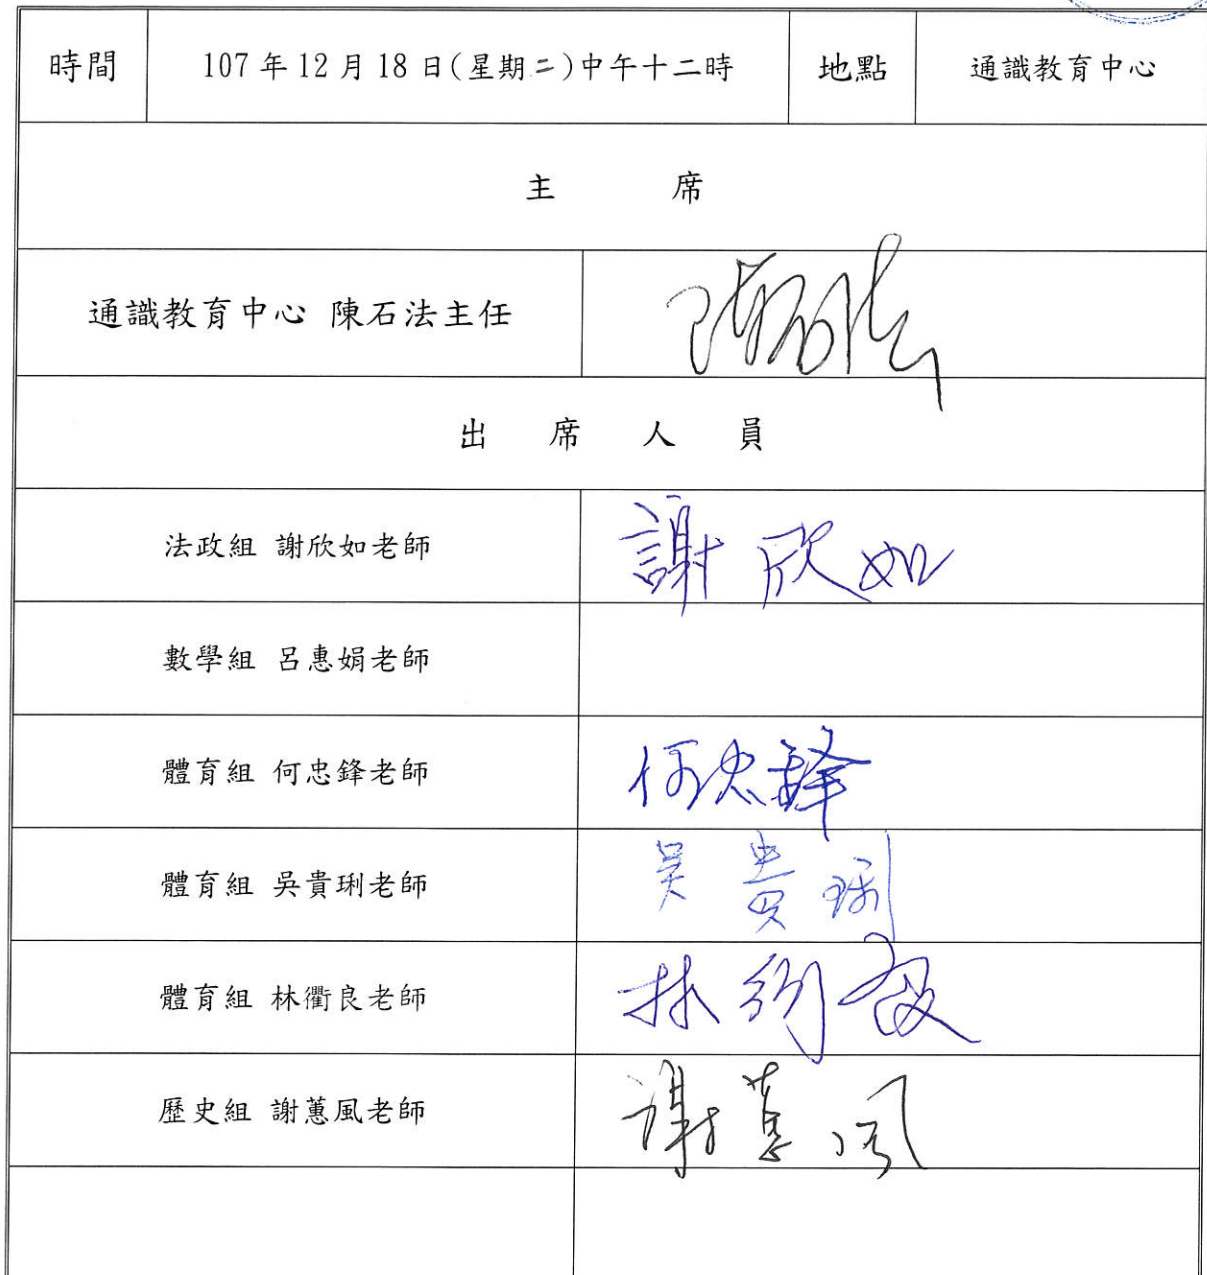 時間 107年12月18日(星期二)中午十二時 地點 通識教育中心
主 席
通識教育中心 陳石法主任 陳石法
出 席 人 員
法政組 謝欣如老師 謝欣如
數學組 呂惠娟老師
體育組 何忠鋒老師 何忠鋒
體育組 吳貴琍老師 吳貴琍
體育組 林衢良老師 林衢良
歷史組 謝蕙風老師 謝蕙風